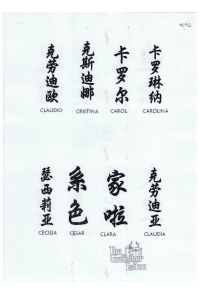 克劳迪欧
克斯迪娜
卡罗尔
卡罗琳纳
CLAUDIO
CRISTINA
CAROL
CAROLINA
瑟西莉亚
系色
家啦
克劳迪亚
CECILIA
CESAR
CLARA
CLAUDIA